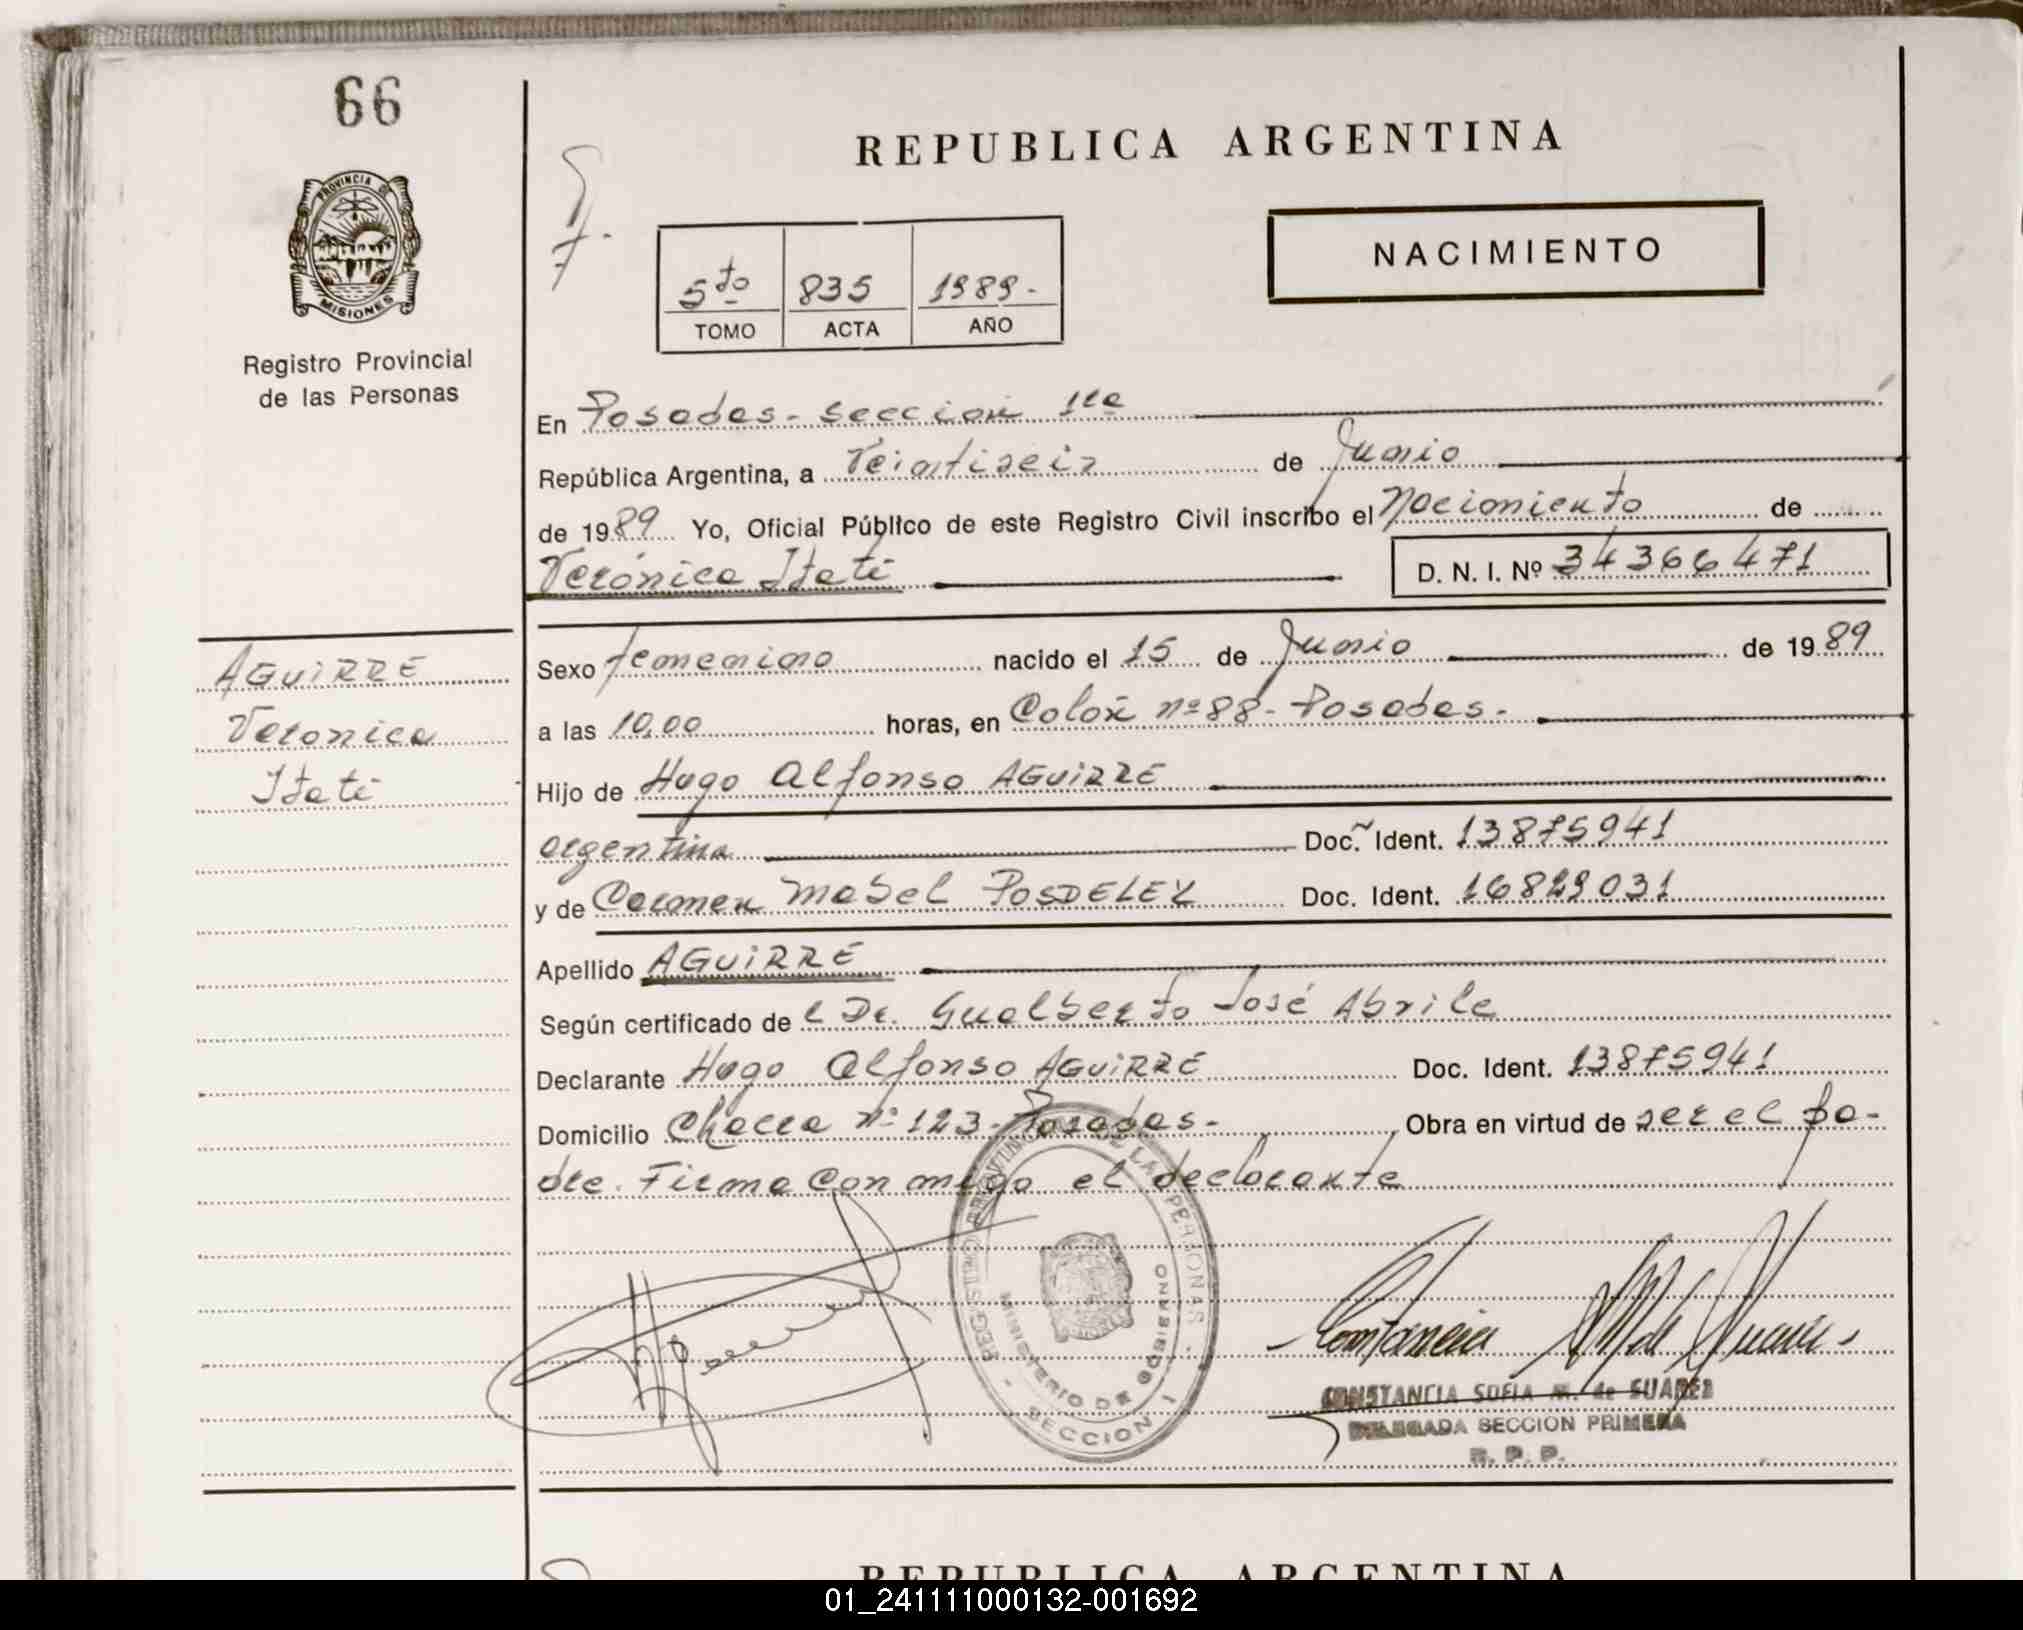 66
PROVINCIA DE
MISIONES
Registro Provincial
de las Personas
REPUBLICA ARGENTINA
NACIMIENTO
5to 835 1989.-
TOMO ACTA AÑO
En Posadas - Sección 1ra
República Argentina, a Veintiseis de Junio
de 1989 Yo, Oficial Público de este Registro Civil inscribo el Nacimiento de
Verónica Itatí D. N. I. Nº 34366471
AGUIRRE
Veronica
Itati
Sexo femenino nacido el 15 de Junio de 1989
a las 10,00 horas, en Colón nº 88 - Posadas.-
Hijo de Hugo Alfonso AGUIRRE
argentina Doc. Ident. 13875941
y de Carmen Mabel POSDELEY Doc. Ident. 16829031
Apellido AGUIRRE
Según certificado de l Dr. Gualberto José Abrile
Declarante Hugo Alfonso AGUIRRE Doc. Ident. 13875941
Domicilio Chacra Nº 123 - Posadas.- Obra en virtud de ser el pa-
dre. Firma con migo el declarante
REGISTRO PROVINCIAL DE LAS PERSONAS
MINISTERIO DE GOBIERNO
SECCION 1
Constancia M de Suarez
CONSTANCIA SOFIA M. de SUAREZ
DELEGADA SECCION PRIMERA
R. P. P.
REPUBLICA ARGENTINA
01_241111000132-001692